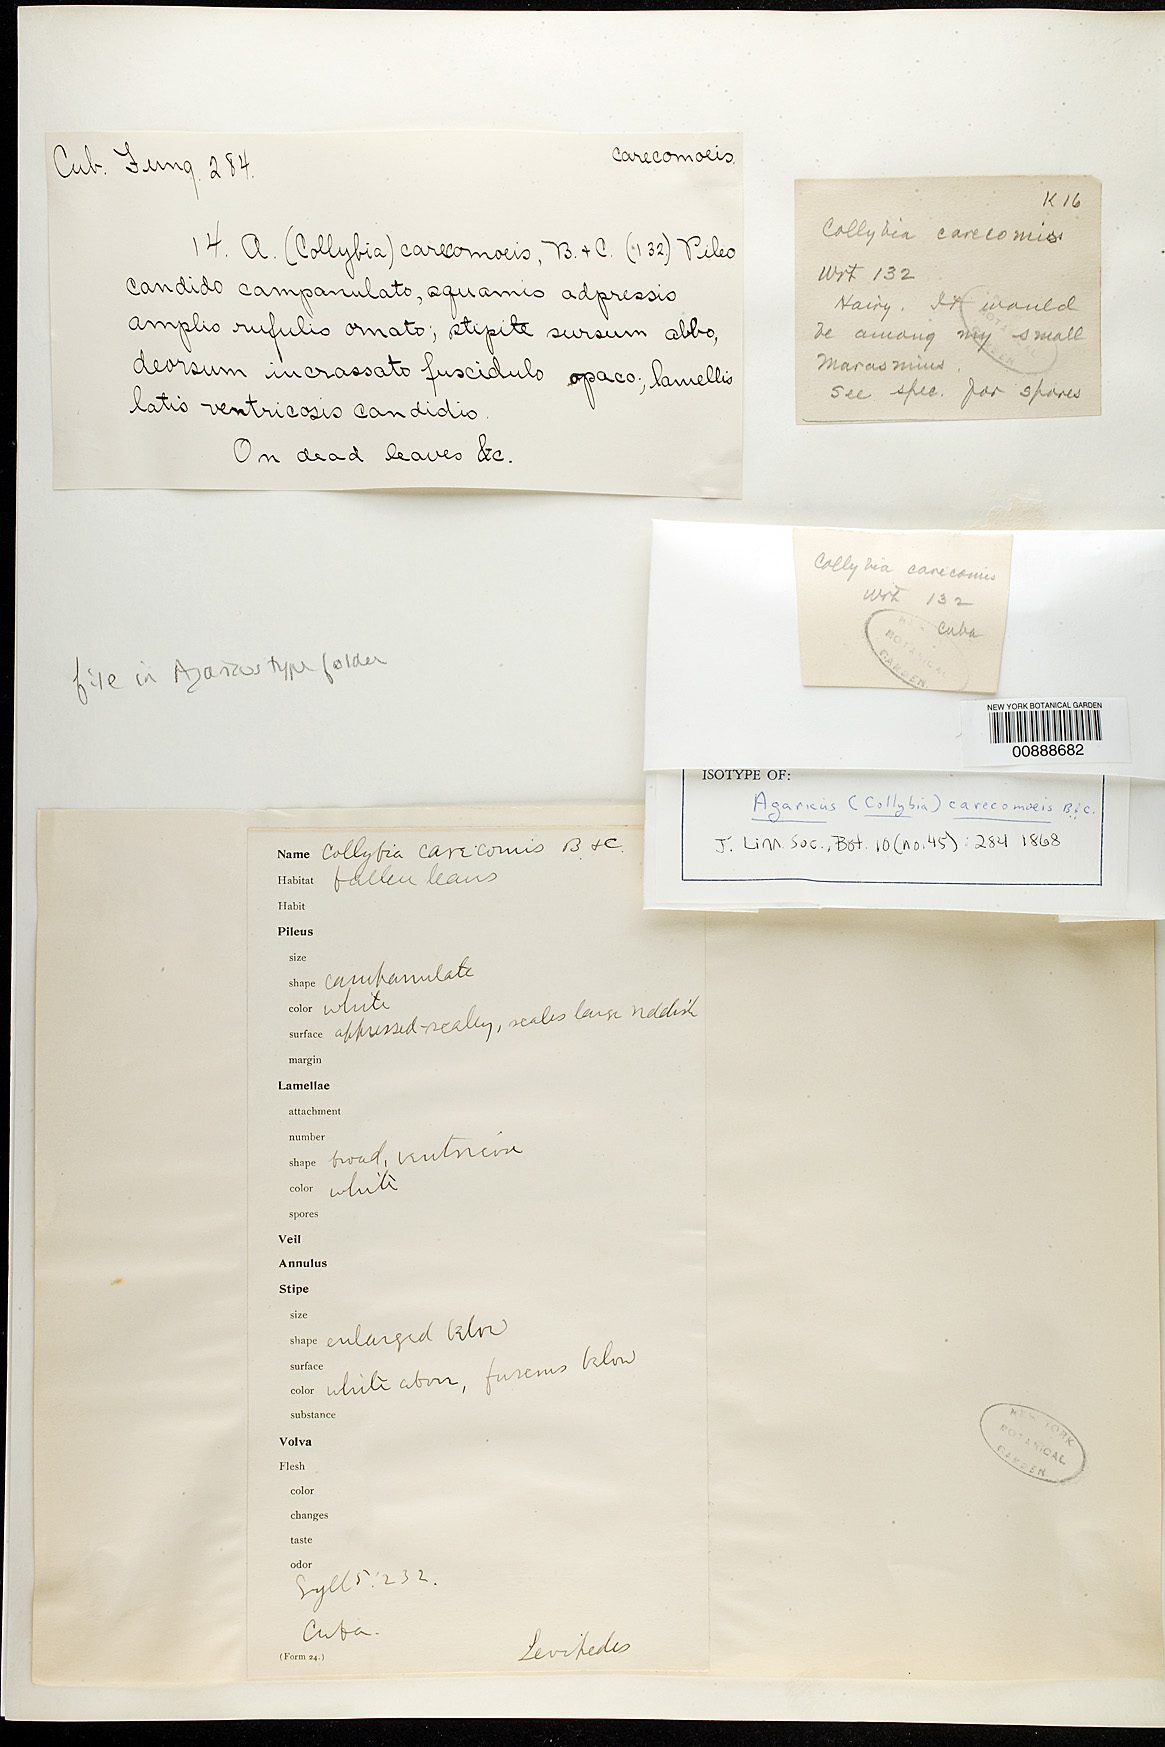 Cub. Fung. 284.
carecomoeis.
14. A. (Collybia) carecomoeis, B. + C. (132) Pileo
candido campanulato, squamis adpressis
amplis rufulis ornato; stipite sursum albo,
deorsum incrassato fuscidulo opaco; lamellis
latis ventricosis candidis.
On dead leaves &c.
K 16
Collybia carecomis
Wrt 132
Hairy. It would
be among my small
Marasmius.
See spec. for spores
NEW YORK
BOTANICAL
GARDEN
Collybia carecomis
Wrt 132
Cuba
NEW YORK
BOTANICAL
GARDEN
file in Agaricus type folder
NEW YORK BOTANICAL GARDEN
00888682
ISOTYPE OF:
Agaricus (Collybia) carecomoeis B. & C.
J. Linn. Soc., Bot. 10 (no. 45) : 284 1868
Name Collybia carecomis B. + C.
Habitat fallen leaves
Habit
Pileus
size
shape campanulate
color white
surface appressed-scaly, scales large reddish
margin
Lamellae
attachment
number
shape broad, ventricose
color white
spores
Veil
Annulus
Stipe
size
shape enlarged below
surface
color white above, fuscous below
substance
Volva
Flesh
color
changes
taste
odor
Syll 5: 232.
Cuba.
(Form 24.)
Levipedes
NEW YORK
BOTANICAL
GARDEN